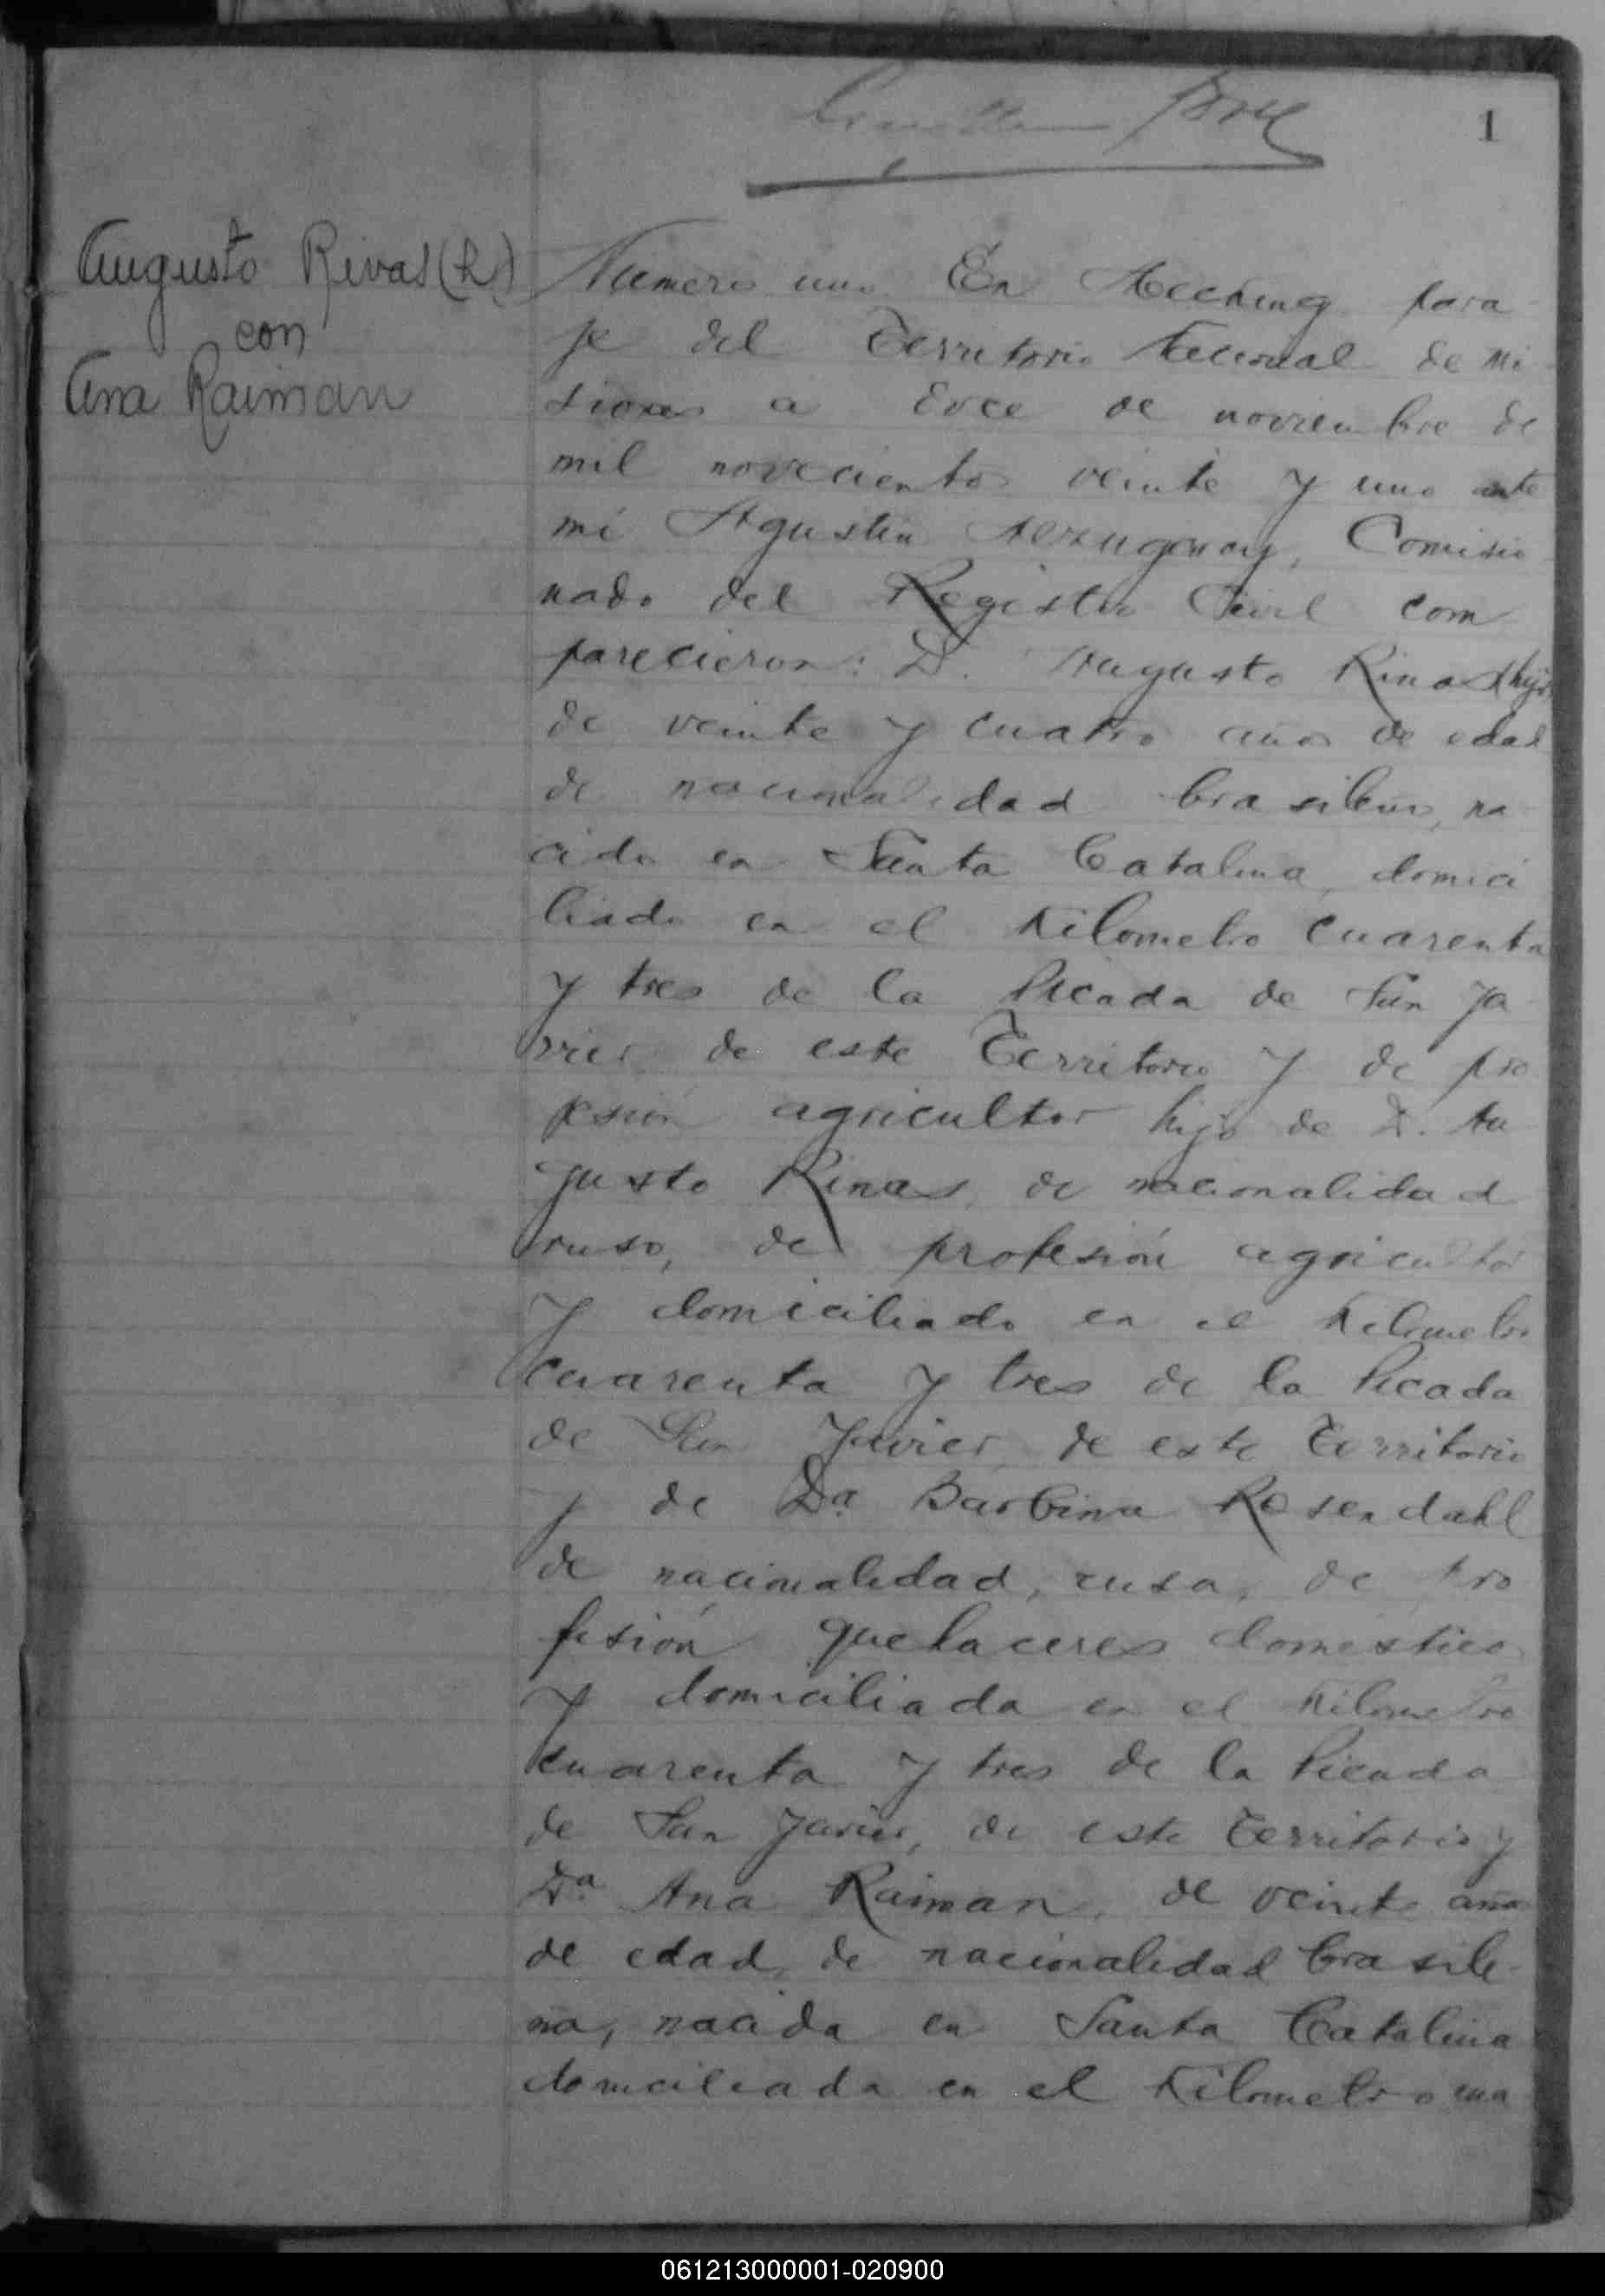 1
Augusto Rivas (h)
con
Ana Raiman
Numero uno En Mecking para
je del Territorio Nacional de Mi
siones a doce de noviembre de
mil novecientos veinte y uno ante
mi Agustin Alzugaray, Comisio
nado del Registro Civil com
parecieron: D. Augusto Rinas (hijo)
de veinte y cuatro años de edad
de nacionalidad brasileno, na
cido en Santa Catalina, domici
liado en el Kilometro cuarenta
y tres de la Picada de San Ja
vier de este Territorio y de pro
fesión agricultor hijo de D. Au
gusto Rinas, de nacionalidad
ruso, de profesión agricultor
y domiciliado en el Kilometro
cuarenta y tres de la Picada
de San Javier, de este Territorio
y de Da Barbina Rosendahl
de nacionalidad, rusa, de pro
fesión quehaceres domesticos
y domiciliada en el Kilometro
cuarenta y tres de la Picada
de San Javier, de este Territorio y
Da Ana Raiman, de veinte años
de edad, de nacionalidad brasile
na, nacida en Santa Catalina
domiciliada en el Kilometro cua
061213000001-020900